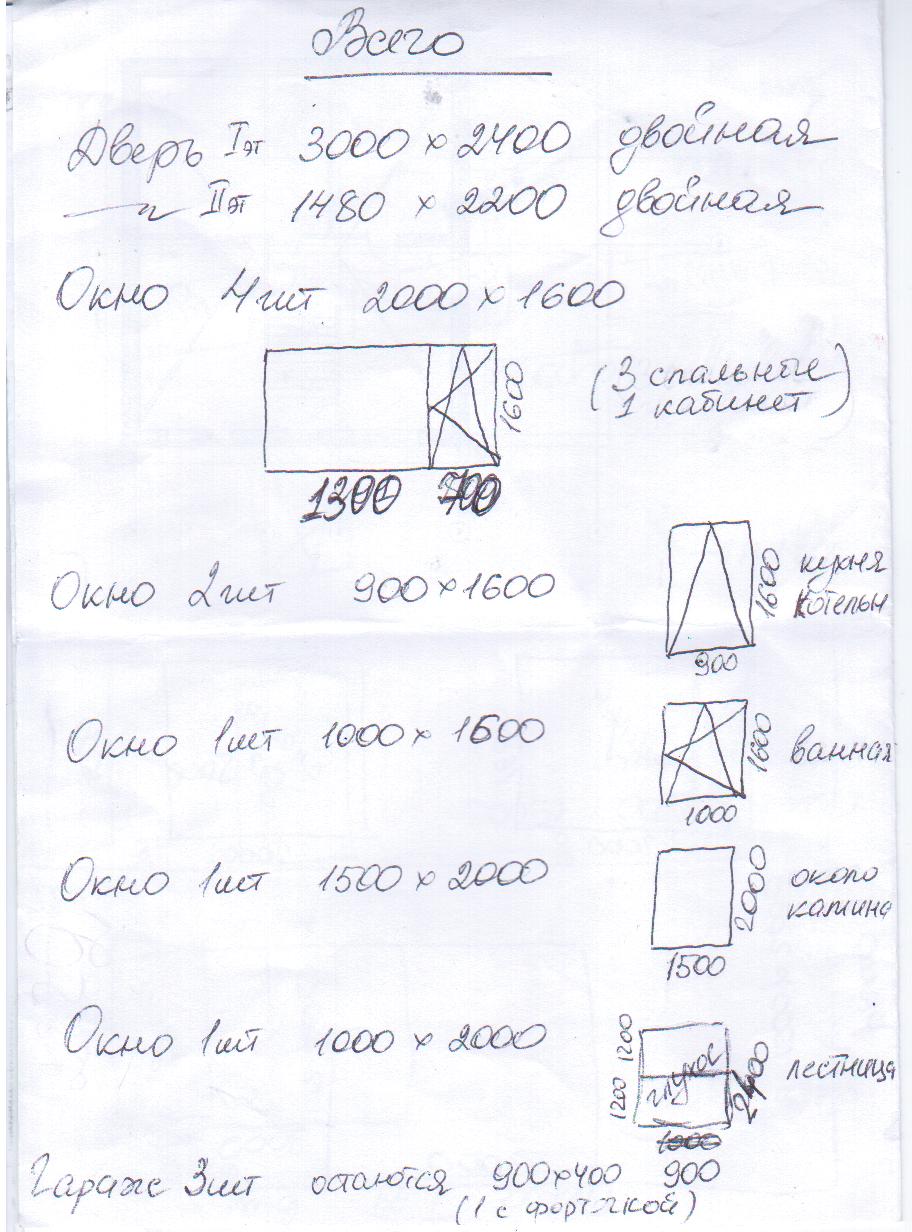 Всего
Дверь I эт 3000 × 2400 двойная
—〃— II эт 1480 × 2200 двойная
Окно 4 шт 2000 × 1600
1600
(3 спальные
1 кабинет)
1300 700
Окно 2 шт 900 × 1600
1600
кухня
котельн
900
Окно 1 шт 1000 × 1600
1600
ванная
1000
Окно 1 шт 1500 × 2000
2000
около
камина
1500
Окно 1 шт 1000 × 2000
1200
1200
глухое
2400
лестница
1000
Гараж 3 шт остаются 900×400 900
(1 с форточкой)